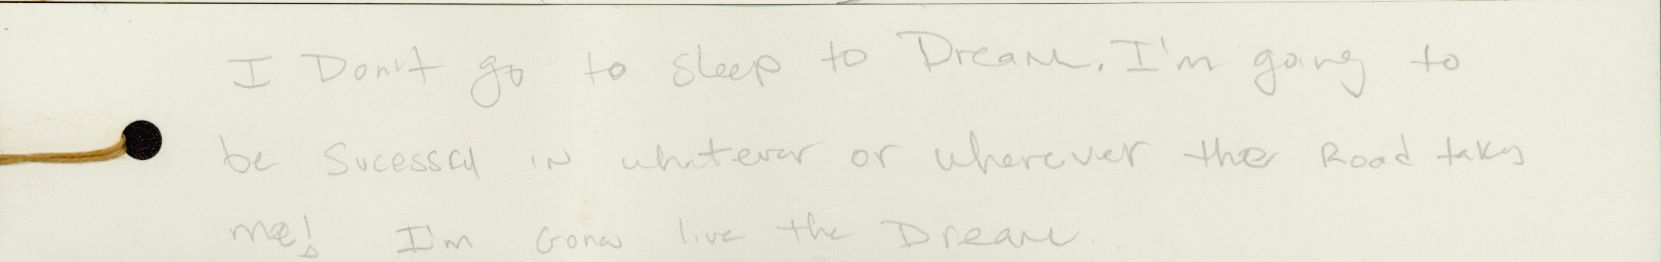 I Don't go to sleep to Dream. I'm going to
be Sucessful in whatever or wherever the Road takes
me! I'm Gona live the Dream.